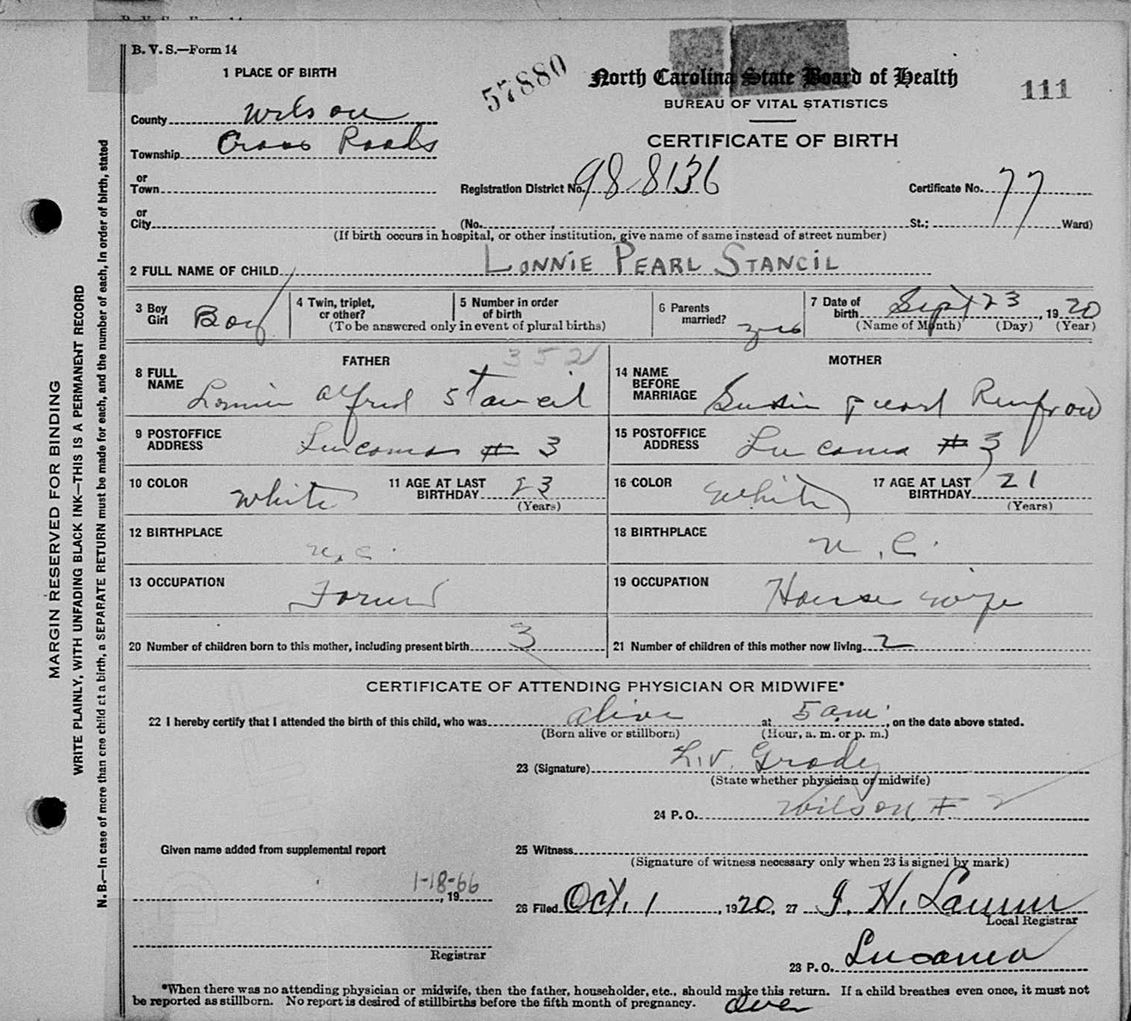 B. V. S.—Form 14
1 PLACE OF BIRTH
57880
North Carolina State Board of Health
111
BUREAU OF VITAL STATISTICS
CERTIFICATE OF BIRTH
County Wilson
Township Cross Roads
or
Town
Registration District No. 98-8136
Certificate No. 77
or
City
(No. St.; Ward)
(If birth occurs in hospital, or other institution, give name of same instead of street number)
2 FULL NAME OF CHILD LONNIE PEARL STANCIL
3 Boy Girl Boy
4 Twin, triplet, or other?
5 Number in order of birth
(To be answered only in event of plural births)
6 Parents married? yes
7 Date of birth Sept 23, 1920
(Name of Month) (Day) (Year)
FATHER
352
MOTHER
8 FULL NAME Lonnie Alfred Stancil
14 NAME BEFORE MARRIAGE Susie Pearl Renfrow
9 POSTOFFICE ADDRESS Lucama # 3
15 POSTOFFICE ADDRESS Lucama # 3
10 COLOR White
11 AGE AT LAST BIRTHDAY 23
(Years)
16 COLOR White
17 AGE AT LAST BIRTHDAY 21
(Years)
12 BIRTHPLACE N. C.
18 BIRTHPLACE N. C.
13 OCCUPATION Farmer
19 OCCUPATION House wife
20 Number of children born to this mother, including present birth 3
21 Number of children of this mother now living 2
CERTIFICATE OF ATTENDING PHYSICIAN OR MIDWIFE*
22 I hereby certify that I attended the birth of this child, who was alive at 5 a.m., on the date above stated.
(Born alive or stillborn) (Hour, a. m. or p. m.)
23 (Signature) L.V. Grady
(State whether physician or midwife)
24 P. O. Wilson # 2
Given name added from supplemental report
25 Witness
(Signature of witness necessary only when 23 is signed by mark)
1-18-66
, 19
26 Filed Oct. 1, 1920, 27 J. H. Lamm
Local Registrar
Registrar
28 P. O. Lucama
*When there was no attending physician or midwife, then the father, householder, etc., should make this return. If a child breathes even once, it must not
be reported as stillborn. No report is desired of stillbirths before the fifth month of pregnancy.
Over
MARGIN RESERVED FOR BINDING
WRITE PLAINLY, WITH UNFADING BLACK INK—THIS IS A PERMANENT RECORD
N. B.—In case of more than one child at a birth, a SEPARATE RETURN must be made for each, and the number of each, in order of birth, stated